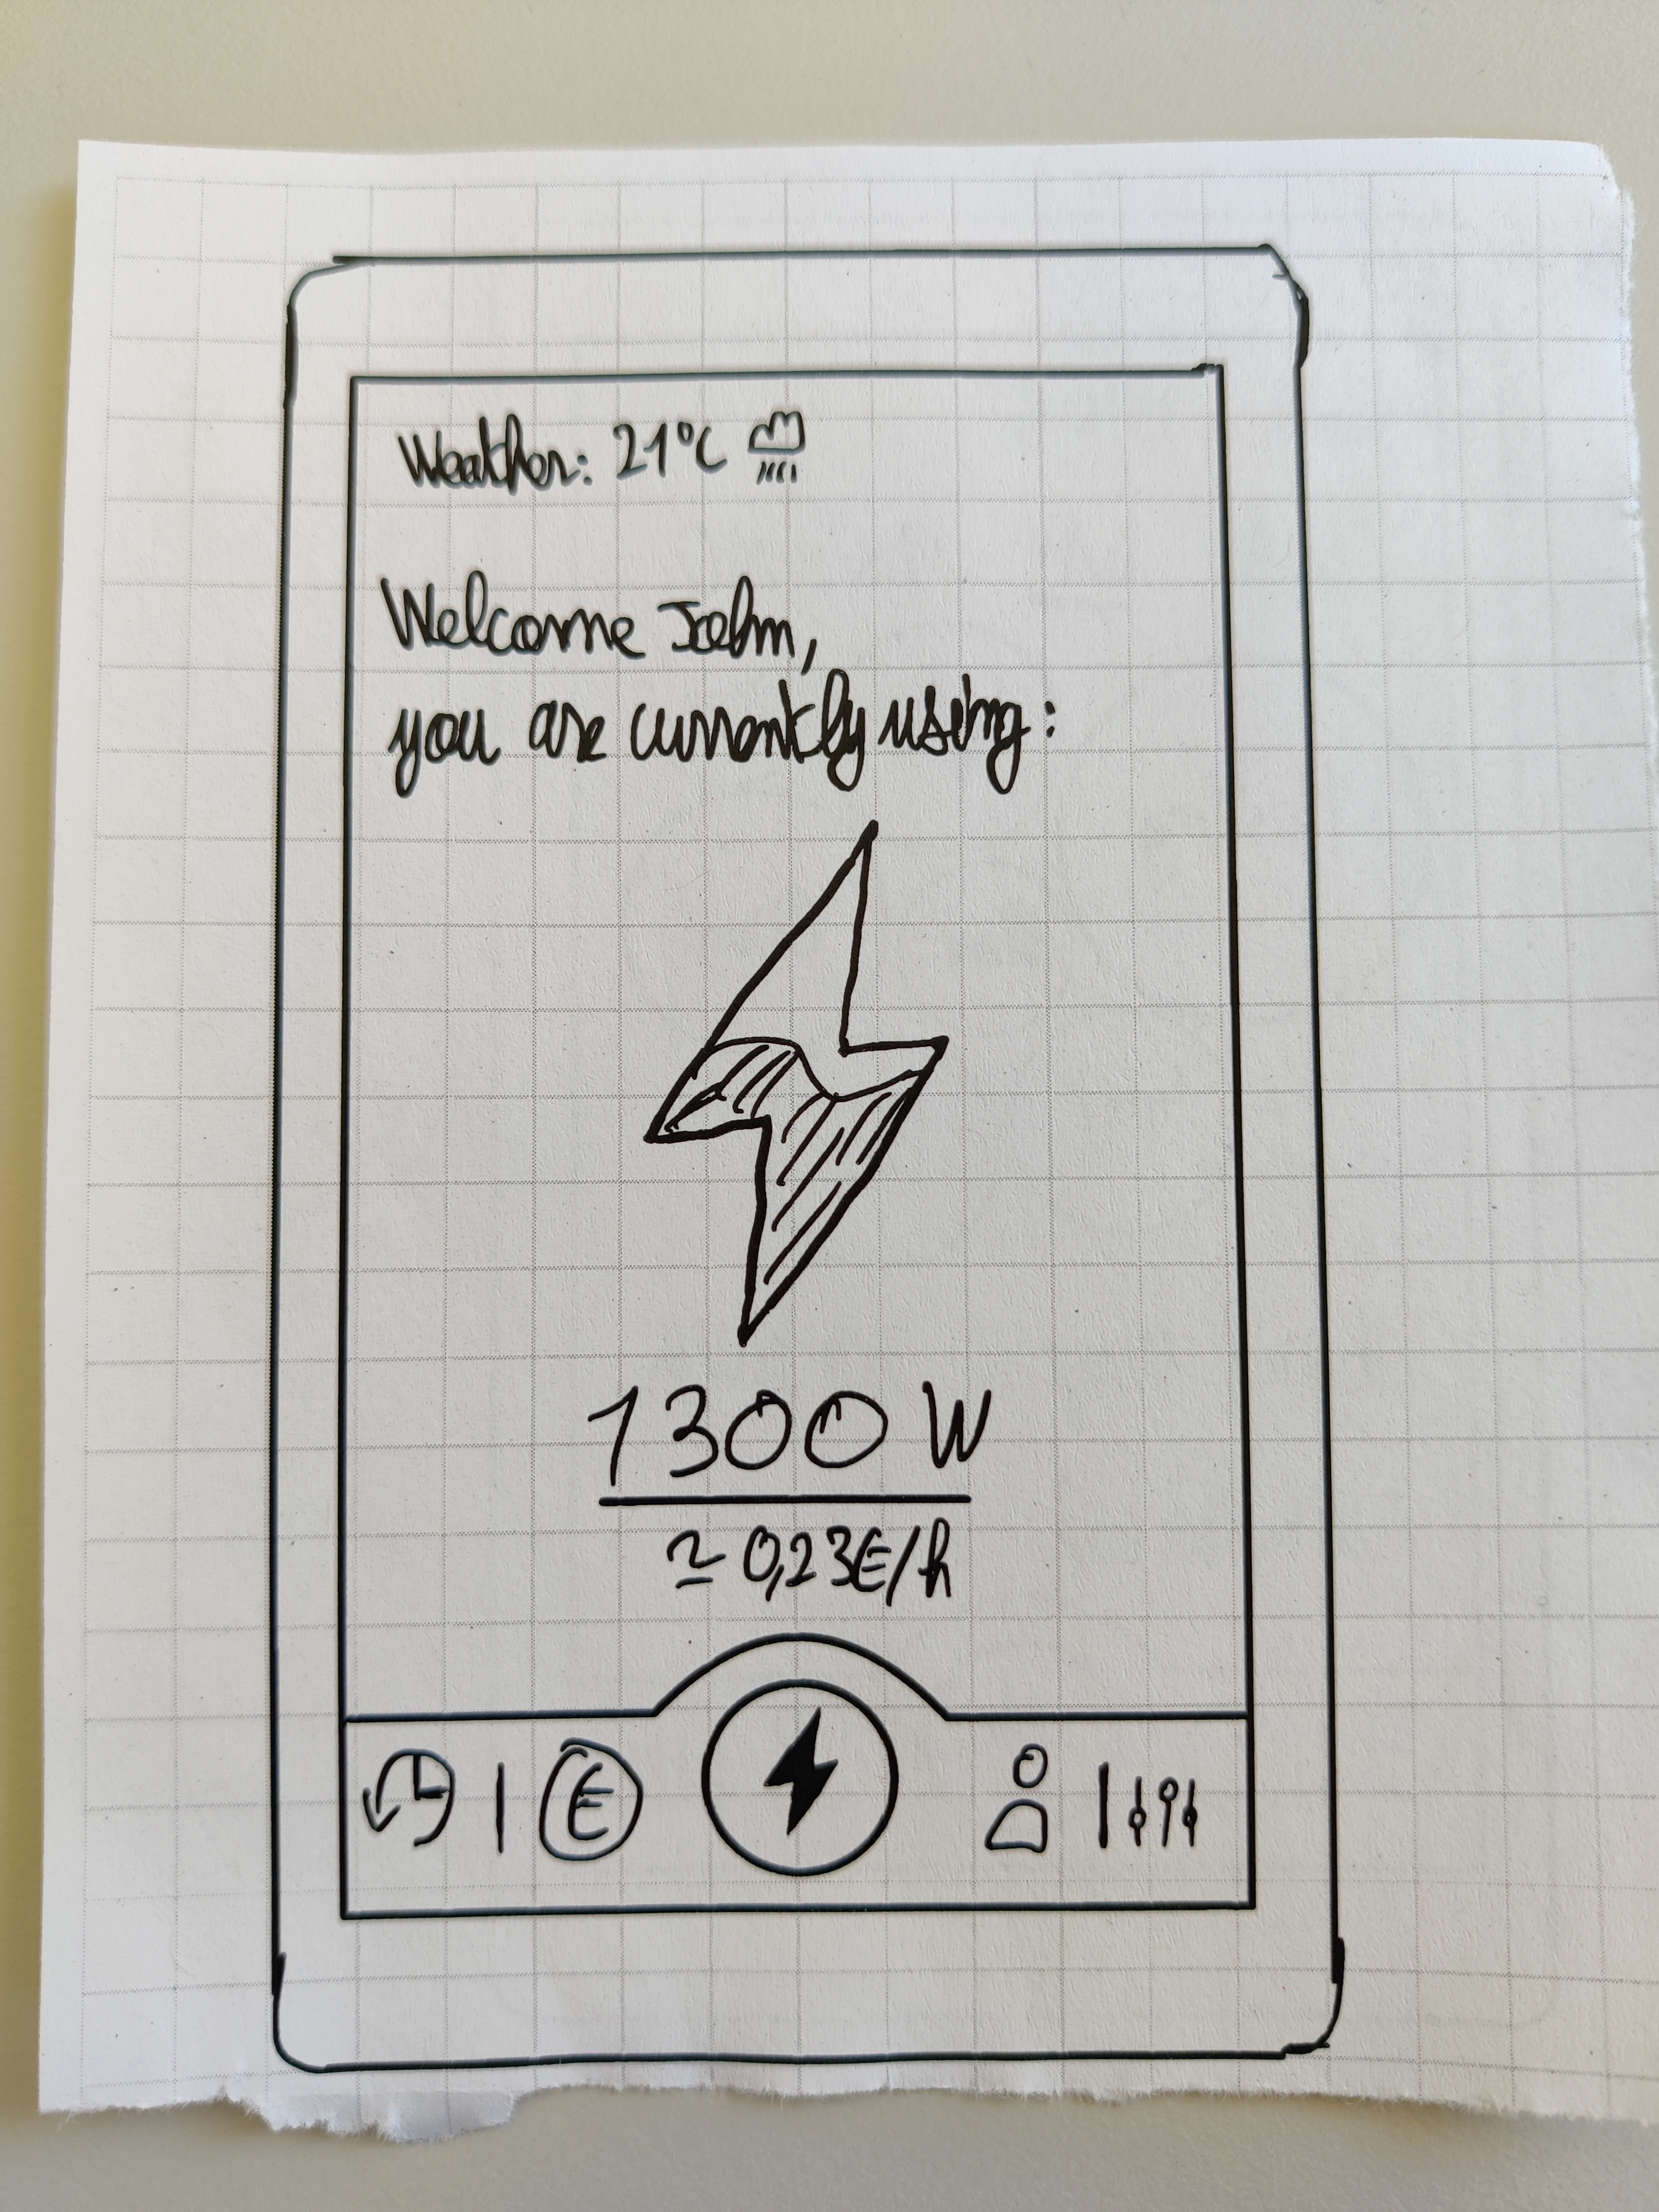 Weather: 21°C
Welcome John,
you are currently using:
1300 W
≃ 0,23€/h
€